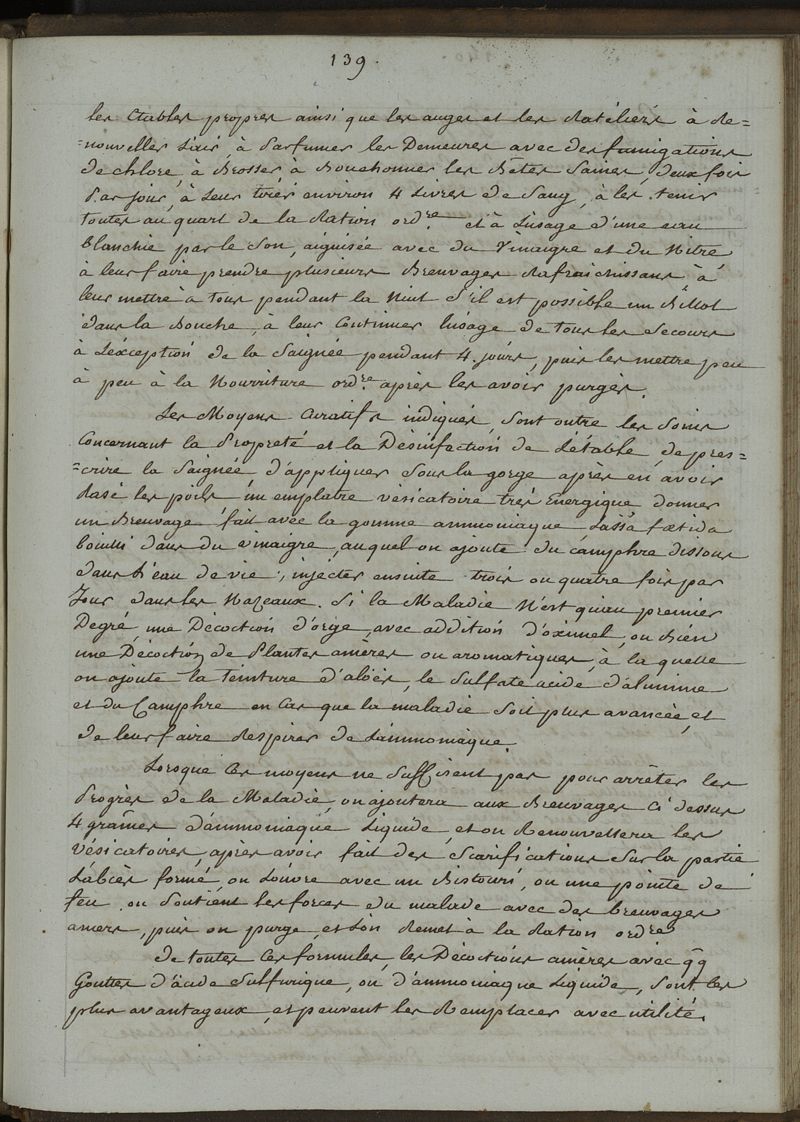 139.
les Etables propres ainsi que les auges et les Rateliers à Re=
=nouveller l'air, à Parfumer les Demeures avec des fumigations
de chlore, à Brosser à Bouchonner les Bêtes Saines, deux fois
Par jour, à Leur tirer environ 4 Livres de Sang, à les tenir
toutes au quart de la Ration ordre et à L'usage d'une eau
Blanchie par le Son, aiguisée avec du Vinaigre et du Nitre
à leur faire prendre plusieurs Breuvages Rafraichissans à
leur mettre à tous pendant la Nuit S'il est possible un Billot
dans la Bouche, à leur Continuer l'usage de tous les Secours
à L'exception de la Saignée pendant 4 jours, puis les mettre peu
à peu à la Nourriture ordre après les avoir purgés.
Les Moyens Curatifs indiqués, Sont outre les Soins
Concernant la Propreté et la Désinfection de L'étable, de pres=
=crire la Saignée, d'appliquer Sous la gorge après en avoir
Rasé les poils un emplatre vésicatoire très Energique, donner
un Breuvage fait avec la gomme ammoniaque, L'assa fœtida
bouilli dans du vinaigre, auquel on ajoute du camphre dissous
dans l'eau de vie; injecter ensuite trois ou quatre fois par
Jour dans les Nazeaux. Si la Maladie N'est qu'au premier
Degré, une Décoction d'orge, avec addition d'oximel, ou Bien
une Décoction de Plantes amères ou aromatiques, à la quelle
on ajoute la teinture d'aloës, le Sulfate acide d'alumine
et du Camphre en Cas que la maladie Soit plus avancée, et
de leur faire Respirer de L'ammoniaque.
Lorsque Ces moyens ne Suffisent pas pour arrêter les
Progrès de la Maladie, on ajoutera aux Breuvages Ci dessus
4 grames d'ammoniaque Liquide, et on Renouvellera les
Vésicatoires, après avoir fait des Scarifications Sur la partie
L'abcès formé, on L'ouvre avec un Bistouri, ou une pointe de
feu. on Soutient les forces du malade avec des breuvages
amers, puis on purge, et L'on Remet à la Ration ordre
De toutes Ces formules, les Décoctions amères avec qq
Gouttes d'acide Sulfurique, ou d'ammoniaque Liquide, Sont les
plus avantageux, et peuvent les Remplacer avec utilité.